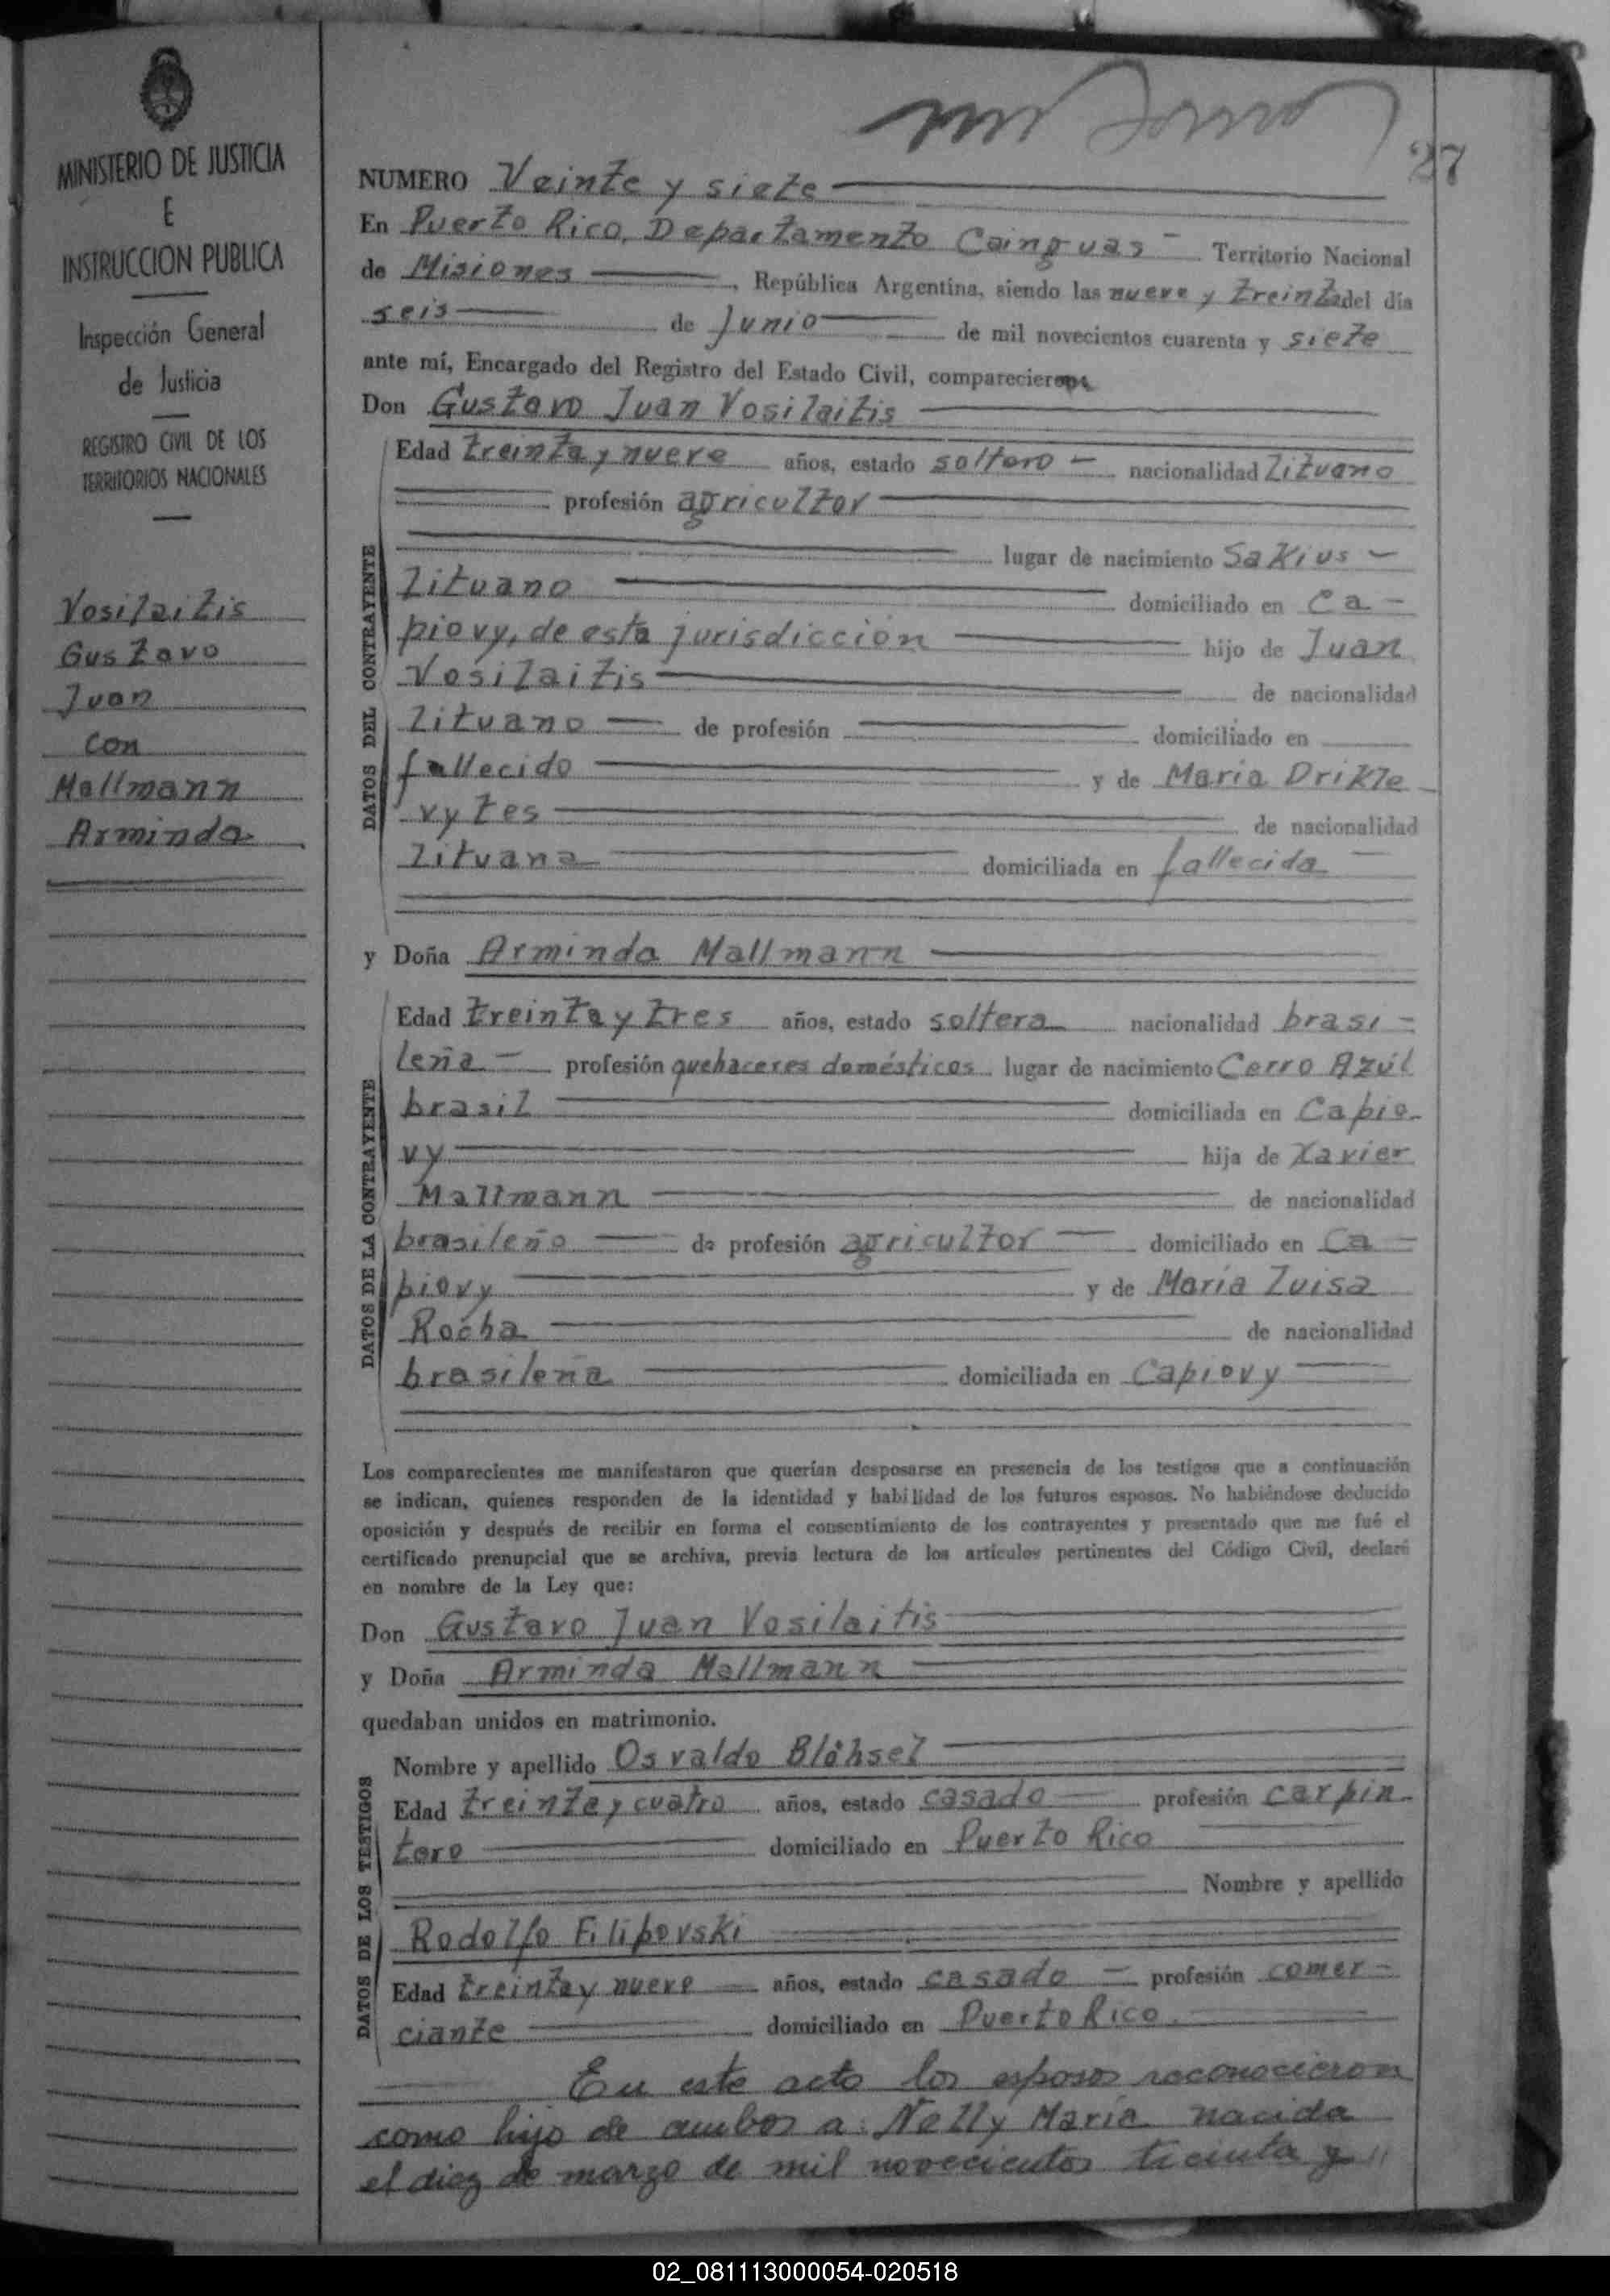 27
MINISTERIO DE JUSTICIA
E
INSTRUCCION PUBLICA
Inspección General
de Justicia
REGISTRO CIVIL DE LOS
TERRITORIOS NACIONALES
Vosilaitis
Gustavo
Juan
con
Mallmann
Arminda
NUMERO Veinte y siete
En Puerto Rico, Departamento Cainguas - Territorio Nacional
de Misiones, República Argentina, siendo las nueve y treinta del día
seis de Junio de mil novecientos cuarenta y siete
ante mí, Encargado del Registro del Estado Civil, comparecieron
Don Gustavo Juan Vosilaitis
DATOS DEL CONTRAYENTE
Edad treinta y nueve años, estado soltero - nacionalidad lituano
profesión agricultor
lugar de nacimiento Sakius -
lituano domiciliado en Ca-
piovy, de esta jurisdicción hijo de Juan
Vosilaitis de nacionalidad
lituano de profesión domiciliado en
fallecido y de María Drikle-
vytes de nacionalidad
lituana domiciliada en fallecida
y Doña Arminda Mallmann
DATOS DE LA CONTRAYENTE
Edad treinta y tres años, estado soltera nacionalidad brasi-
leña - profesión quehaceres domésticos lugar de nacimiento Cerro Azúl
brasil domiciliada en Capio-
vy hija de Xavier
Mallmann de nacionalidad
brasileño de profesión agricultor domiciliado en Ca-
piovy y de María Luisa
Rocha de nacionalidad
brasileña domiciliada en Capiovy
Los comparecientes me manifestaron que querían desposarse en presencia de los testigos que a continuación
se indican, quienes responden de la identidad y habilidad de los futuros esposos. No habiéndose deducido
oposición y después de recibir en forma el consentimiento de los contrayentes y presentado que me fué el
certificado prenupcial que se archiva, previa lectura de los artículos pertinentes del Código Civil, declaré
en nombre de la Ley que:
Don Gustavo Juan Vosilaitis
y Doña Arminda Mallmann
quedaban unidos en matrimonio.
DATOS DE LOS TESTIGOS
Nombre y apellido Osvaldo Blöhsel
Edad treinta y cuatro años, estado casado profesión carpin-
tero domiciliado en Puerto Rico
Nombre y apellido
Rodolfo Filipovski
Edad treinta y nueve años, estado casado - profesión comer-
ciante domiciliado en Puerto Rico
En este acto los esposos reconocieron
como hijo de ambos a: Nelly María nacida
el diez de marzo de mil novecientos treinta y "
02_081113000054-020518